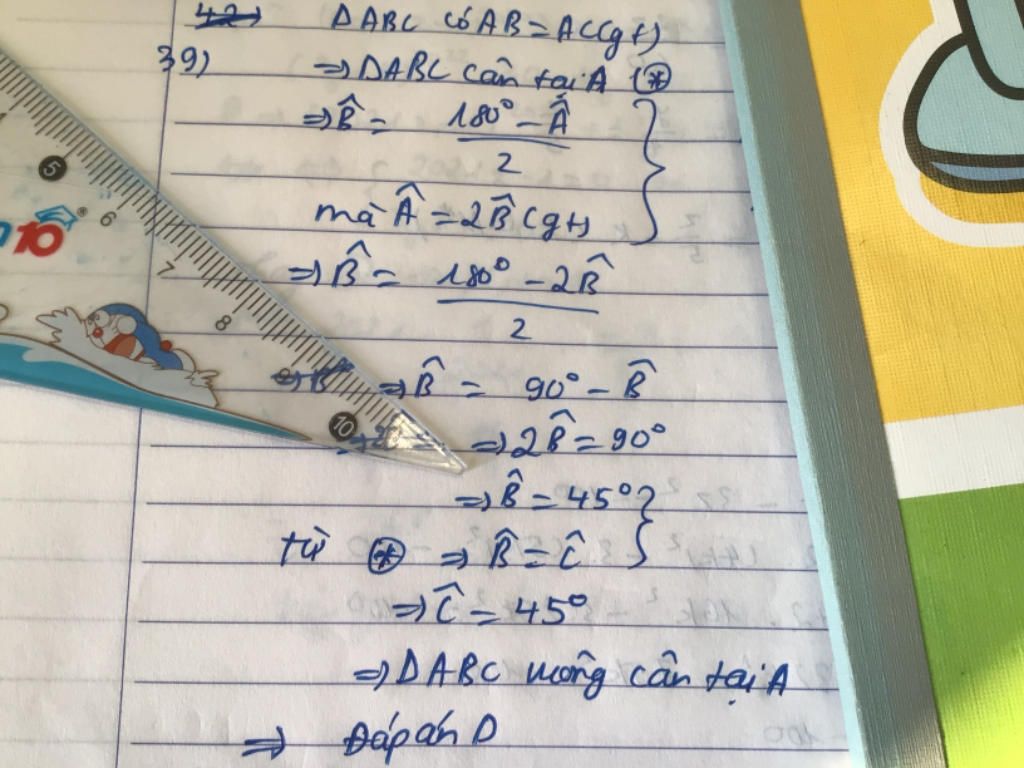 42) ΔABC có AB = AC (gt)
39) ⇒ ΔABC cân tại A (*)
⇒ B̂ = (180° - Â)/2
mà Â = 2B̂ (gt)
⇒ B̂ = (180° - 2B̂)/2
⇒ B̂ = 90° - B̂
⇒ 2B̂ = 90°
⇒ B̂ = 45°
từ (*) ⇒ B̂ = Ĉ
⇒ Ĉ = 45°
⇒ ΔABC vuông cân tại A
⇒ Đáp án D
5
6
7
8
10
10